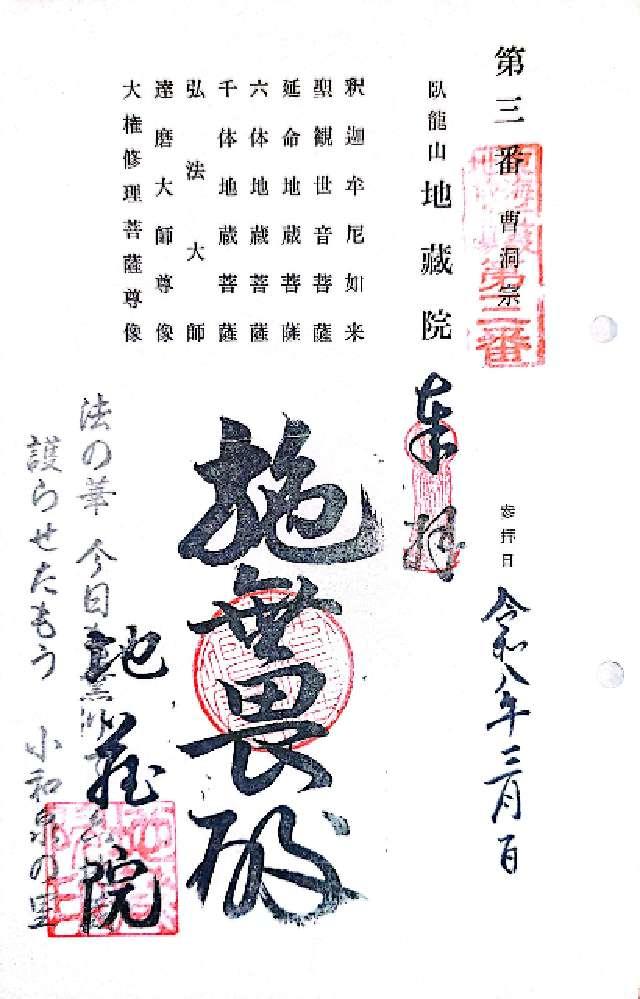 第三番 曹洞宗
第三番
臥龍山 地蔵院
釈迦牟尼如来
聖観世音菩薩
延命地蔵菩薩
六体地蔵菩薩
千体地蔵菩薩
弘法大師
達磨大師尊像
大権修理菩薩尊像
参拝日
令和八年三月 日
奉拝
施無畏殿
地蔵院
法の華 今日
護らせたもう 小和泉の里